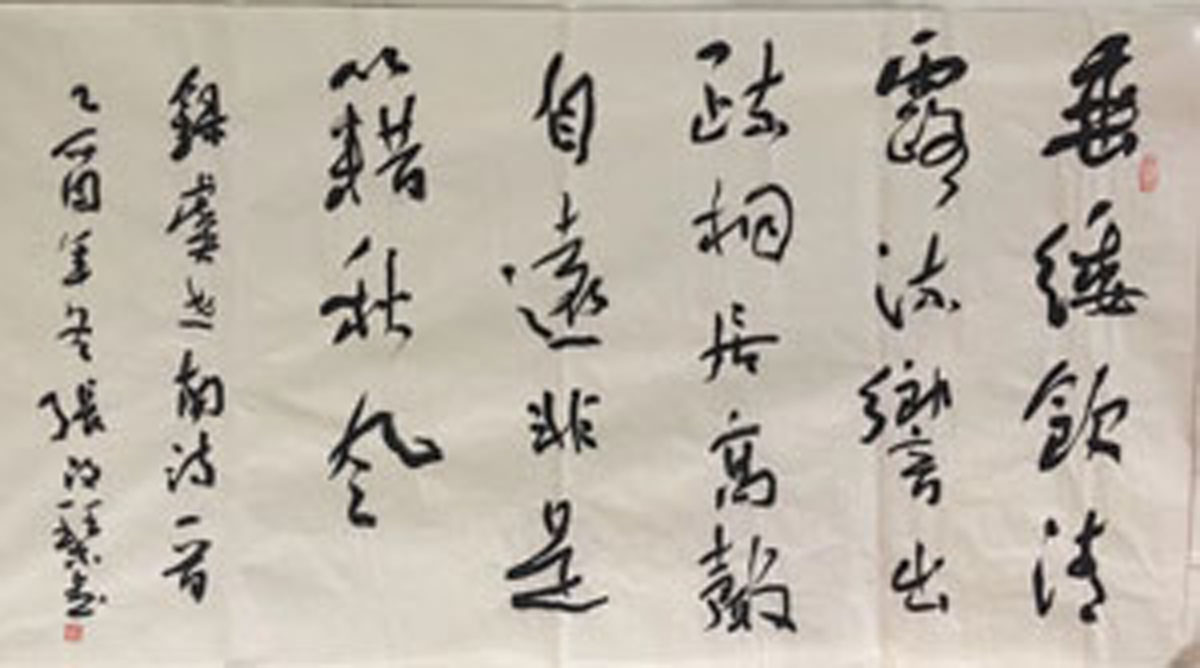 垂緌飲清
露流響出
疏桐居高聲
自遠非是
籍秋風
錄虞世南詩一首
乙酉年冬張